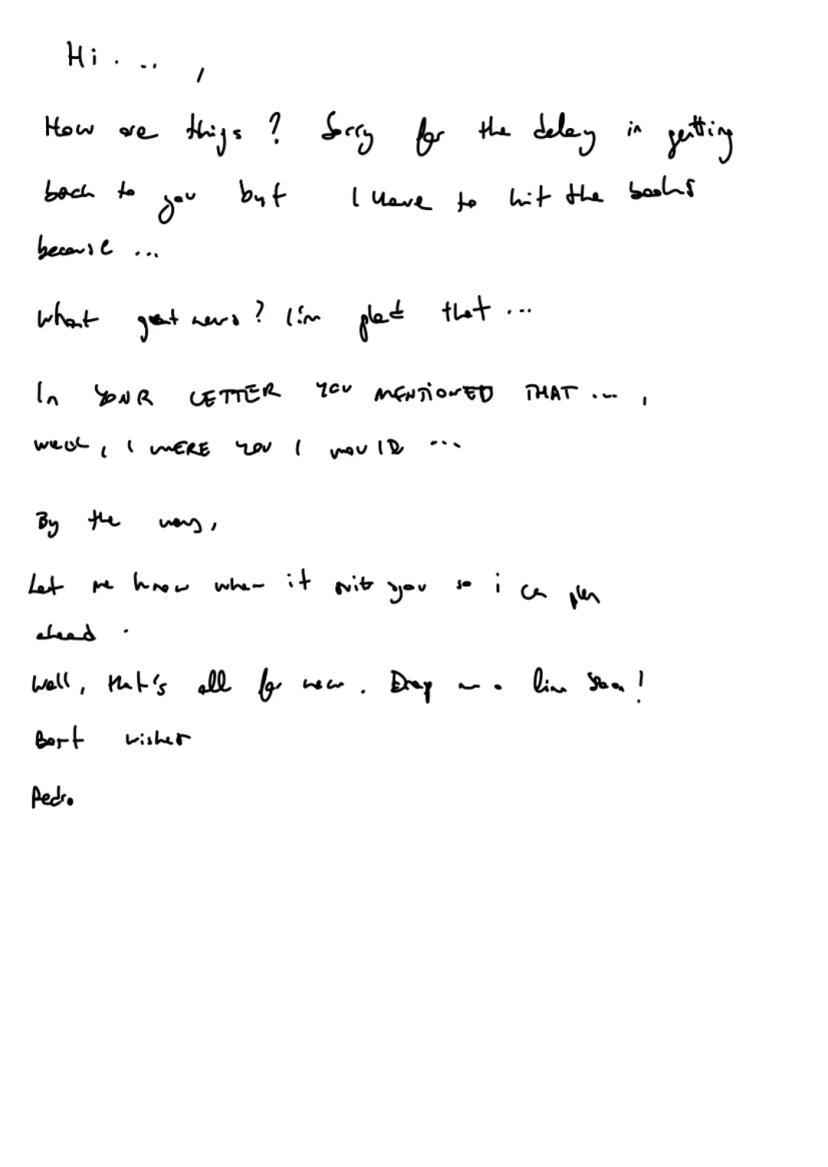 Hi . .. ,
How are things ? Sorry for the delay in getting
back to you but I have to hit the books
because ...
What great news ? I'm glad that ...
In YOUR LETTER YOU MENTIONED THAT ... ,
WELL, I WERE YOU I WOULD ...
By the way,
Let me know when it suits you so i can plan
ahead .
Well, that's all for now . Drop me a line soon !
Best wishes
Pedro